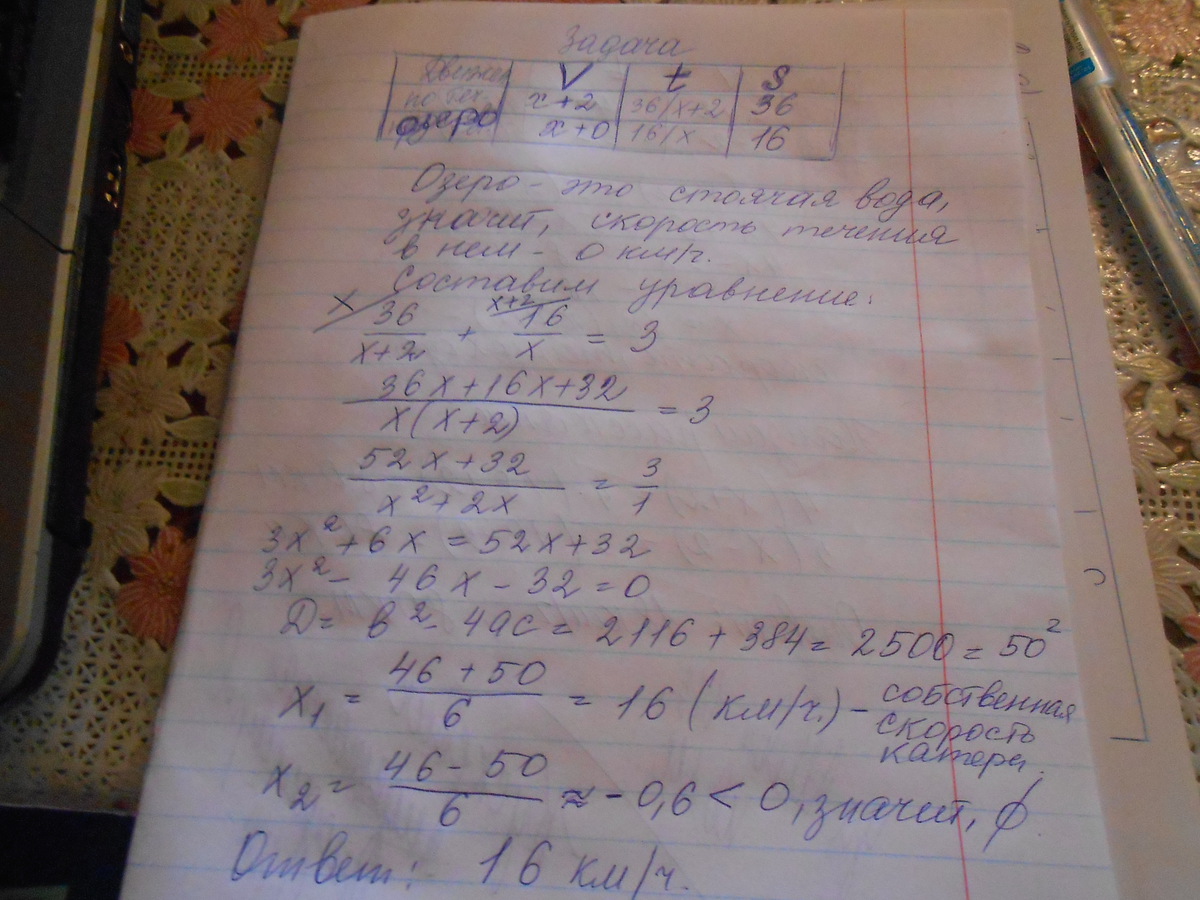 Задача
V t S
по теч. x+2 36/x+2 36
озеро x+0 16/x 16
Озеро - это стоячая вода,
значит, скорость течения
в нем - 0 км/ч.
Составим уравнение:
x x+2
36/x+2 + 16/x = 3
36x+16x+32/x(x+2) = 3
52x+32/x²+2x = 3/1
3x²+6x=52x+32
3x²- 46x-32=0
D= в²-4ac= 2116+384= 2500=50²
x₁ = 46+50/6 = 16 (км/ч.) - собственная
скорость
катера.
x₂= 46-50/6 ≈ -0,6 < 0, значит, ∅
Ответ: 16 км/ч.